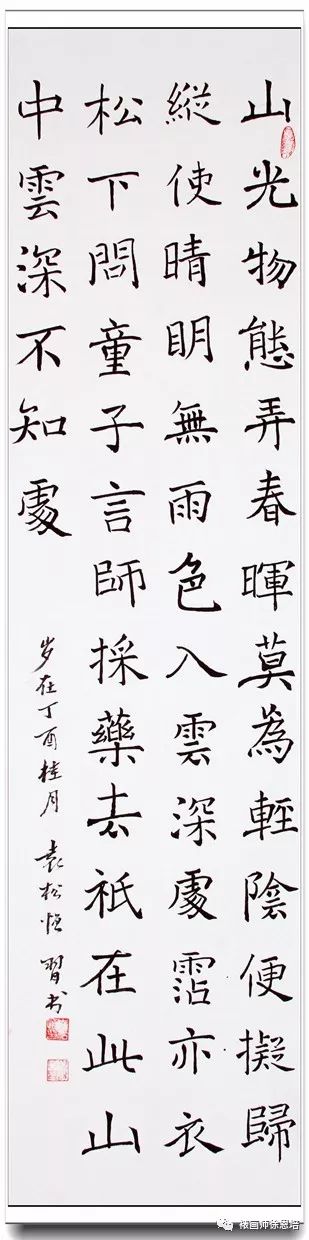 山光物態弄春暉莫為輕陰便擬歸
縱使晴眀無雨色入雲深處霑亦衣
松下問童子言師採藥去祇在此山
中雲深不知處
岁在丁酉桂月 袁松恒 習书
裱画师徐恩培